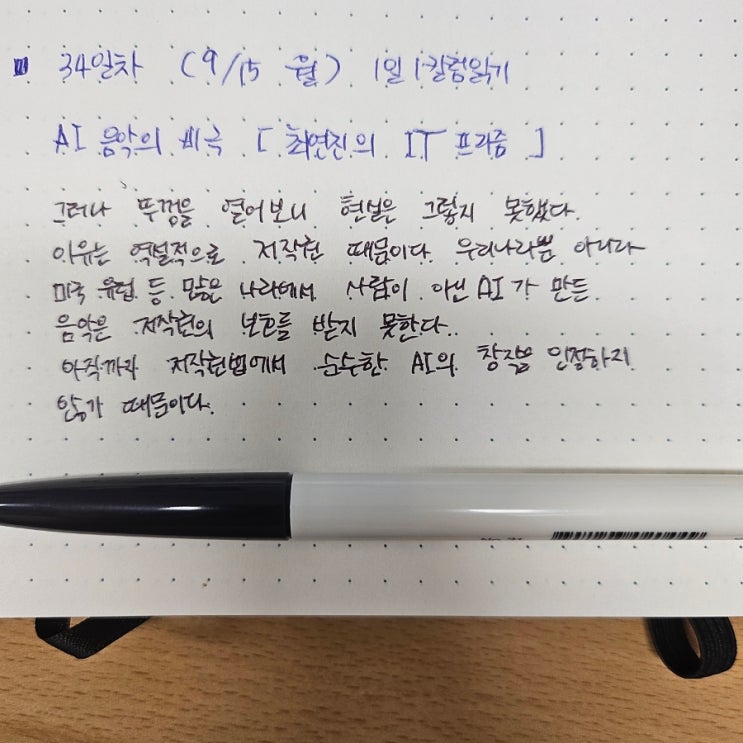 34일차 (9/15 월) 1일 1칼럼읽기
AI 음악의 비극 [최연진의 IT 프리즘]
그러나 뚜껑을 열어보니 현실은 그렇지 못했다.
이유는 역설적으로 저작권 때문이다. 우리나라뿐 아니라
미국 유럽 등 많은 나라에서 사람이 아닌 AI가 만든
음악은 저작권의 보호를 받지 못한다.
아직까지 저작권법에서 순수한 AI의 창작을 인정하지
않기 때문이다.